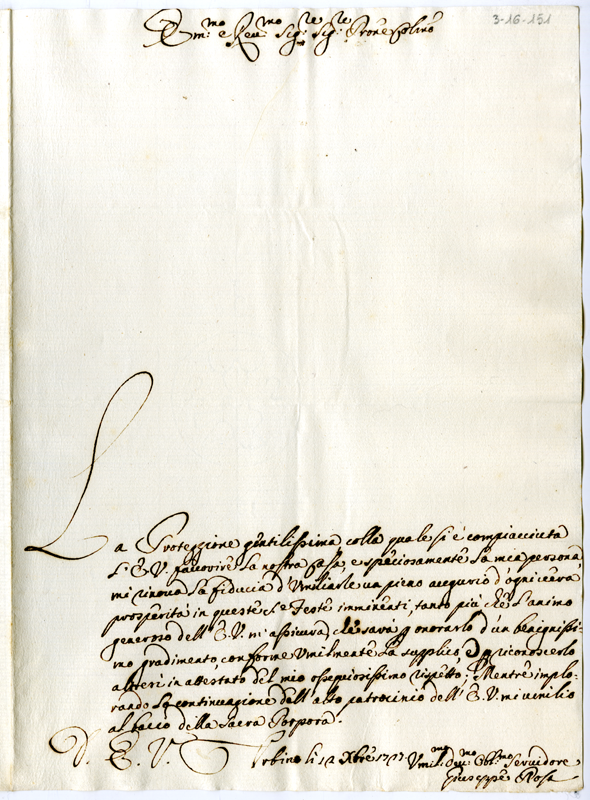 3-16-151
Em:mo e Rev:mo Sig:re Sig:re Prone Colmo
La Protezzione gentilissima colla quale si è compiacciuta
L'E. V. favorire la nostra Casa, e speciosamente la mia persona
mi rinova la fiducia d'Umiliarle un pieno augurio d'ogni vera
prosperità in queste Ste Feste imminenti, tanto più che l'animo
generoso dell'E. V. m'assicura, che sarà p onorarlo d'un benignissi-
mo gradimento, conforme Umilmente La supplico, riconoscerlo
altresi in attestato del mio ossequiosissimo rispetto; Mentre implo-
rando la continuazione dell'alto patrocinio dell'E. V. mi umilio
al baccio della Sacra Porpora.
D. E. V. Urbino li 12 Xbre Umil:mo Dev:mo Obl:mo Servidore
Giuseppe Rosa